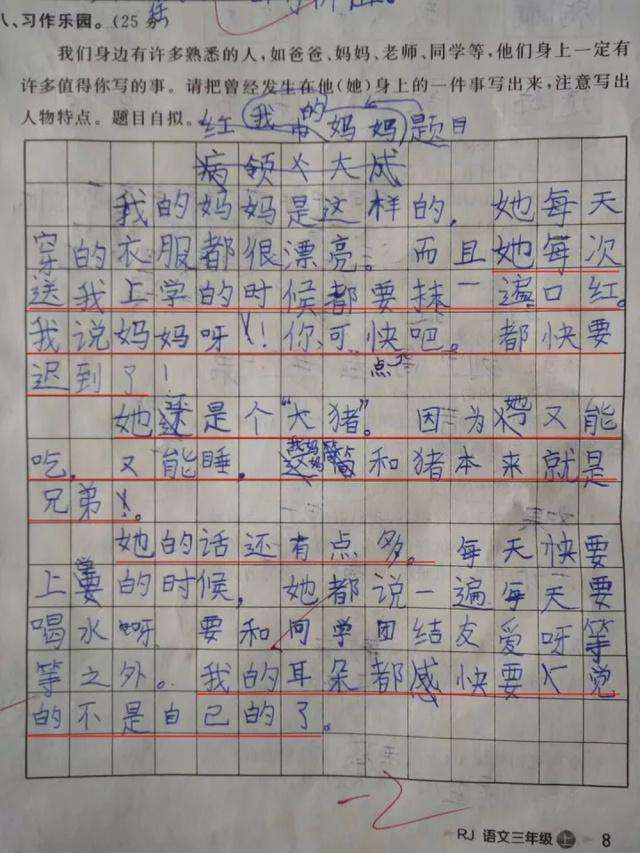 八、习作乐园。(25分)
我们身边有许多熟悉的人,如爸爸、妈妈、老师、同学等,他们身上一定有
许多值得你写的事。请把曾经发生在他(她)身上的一件事写出来,注意写出
人物特点。题目自拟。
红我的妈妈题目
病领大成
我的妈妈是这样的,她每天
穿的衣服都很漂亮。而且她每次
送我上学的时候都要抹一遍口红。
我说妈妈呀!你可快吧。都快要
点
迟到了!
她还是个“大猪”。因为她又能
吃,又能睡,我妈妈简直和猪本来就是
兄弟。
她的话还有点多。每天快要
上学的时候,她都说一遍每天要
喝水呀要和同学团结友爱呀等
等之外。我的耳朵都感快要觉
的不是自己的了。
-2
RJ 语文三年级 上 8